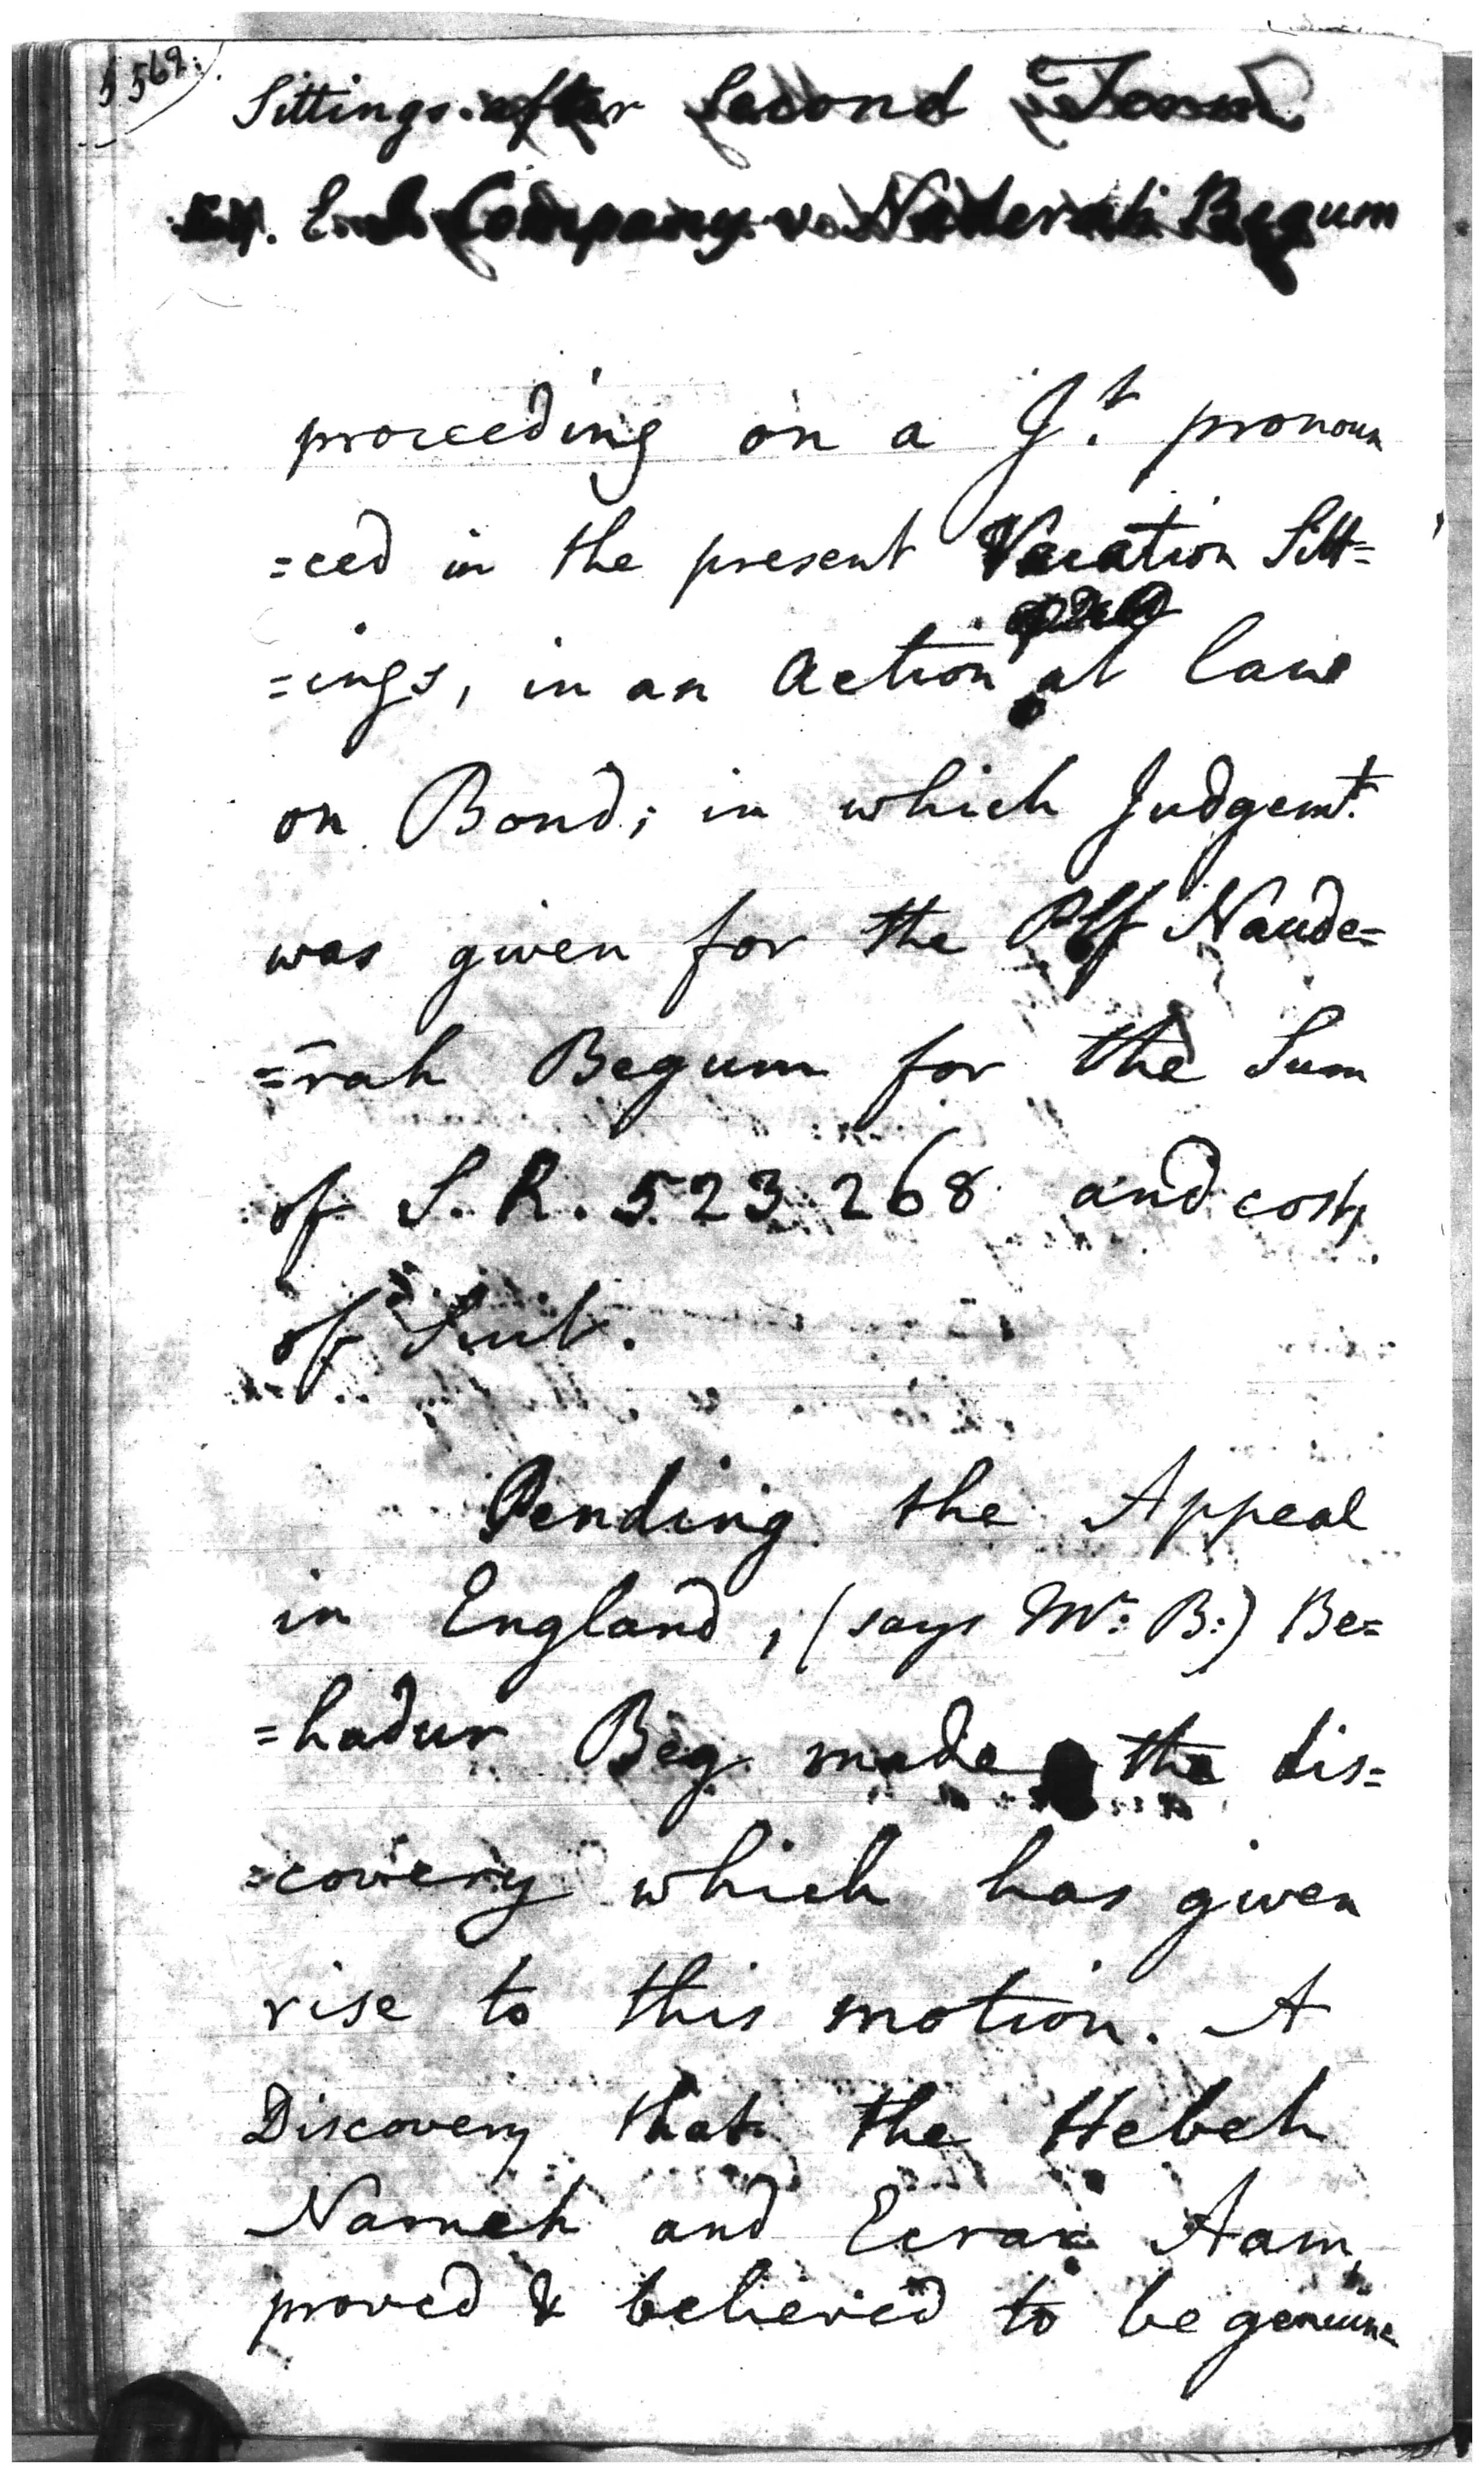 562.
Sittings after Second Term
E. I. Company v. Naderah Begum
proceeding on a J.t pronoun
=ced in the present Vacation Sitt=
=ings, in an Action at law
on Bond; in which Judgemt.
was given for the Plf Naude=
=rah Begum for the Sum
of S. R. 523,268 and costs
of Suit.
Pending the Appeal
in England, (says Mr. B:) Be=
=hadur Beg made the dis=
=covery which has given
rise to this motion. A
Discovery that the Hebeh
Nameh and Ecrar Aam,
proved & believed to be genuine